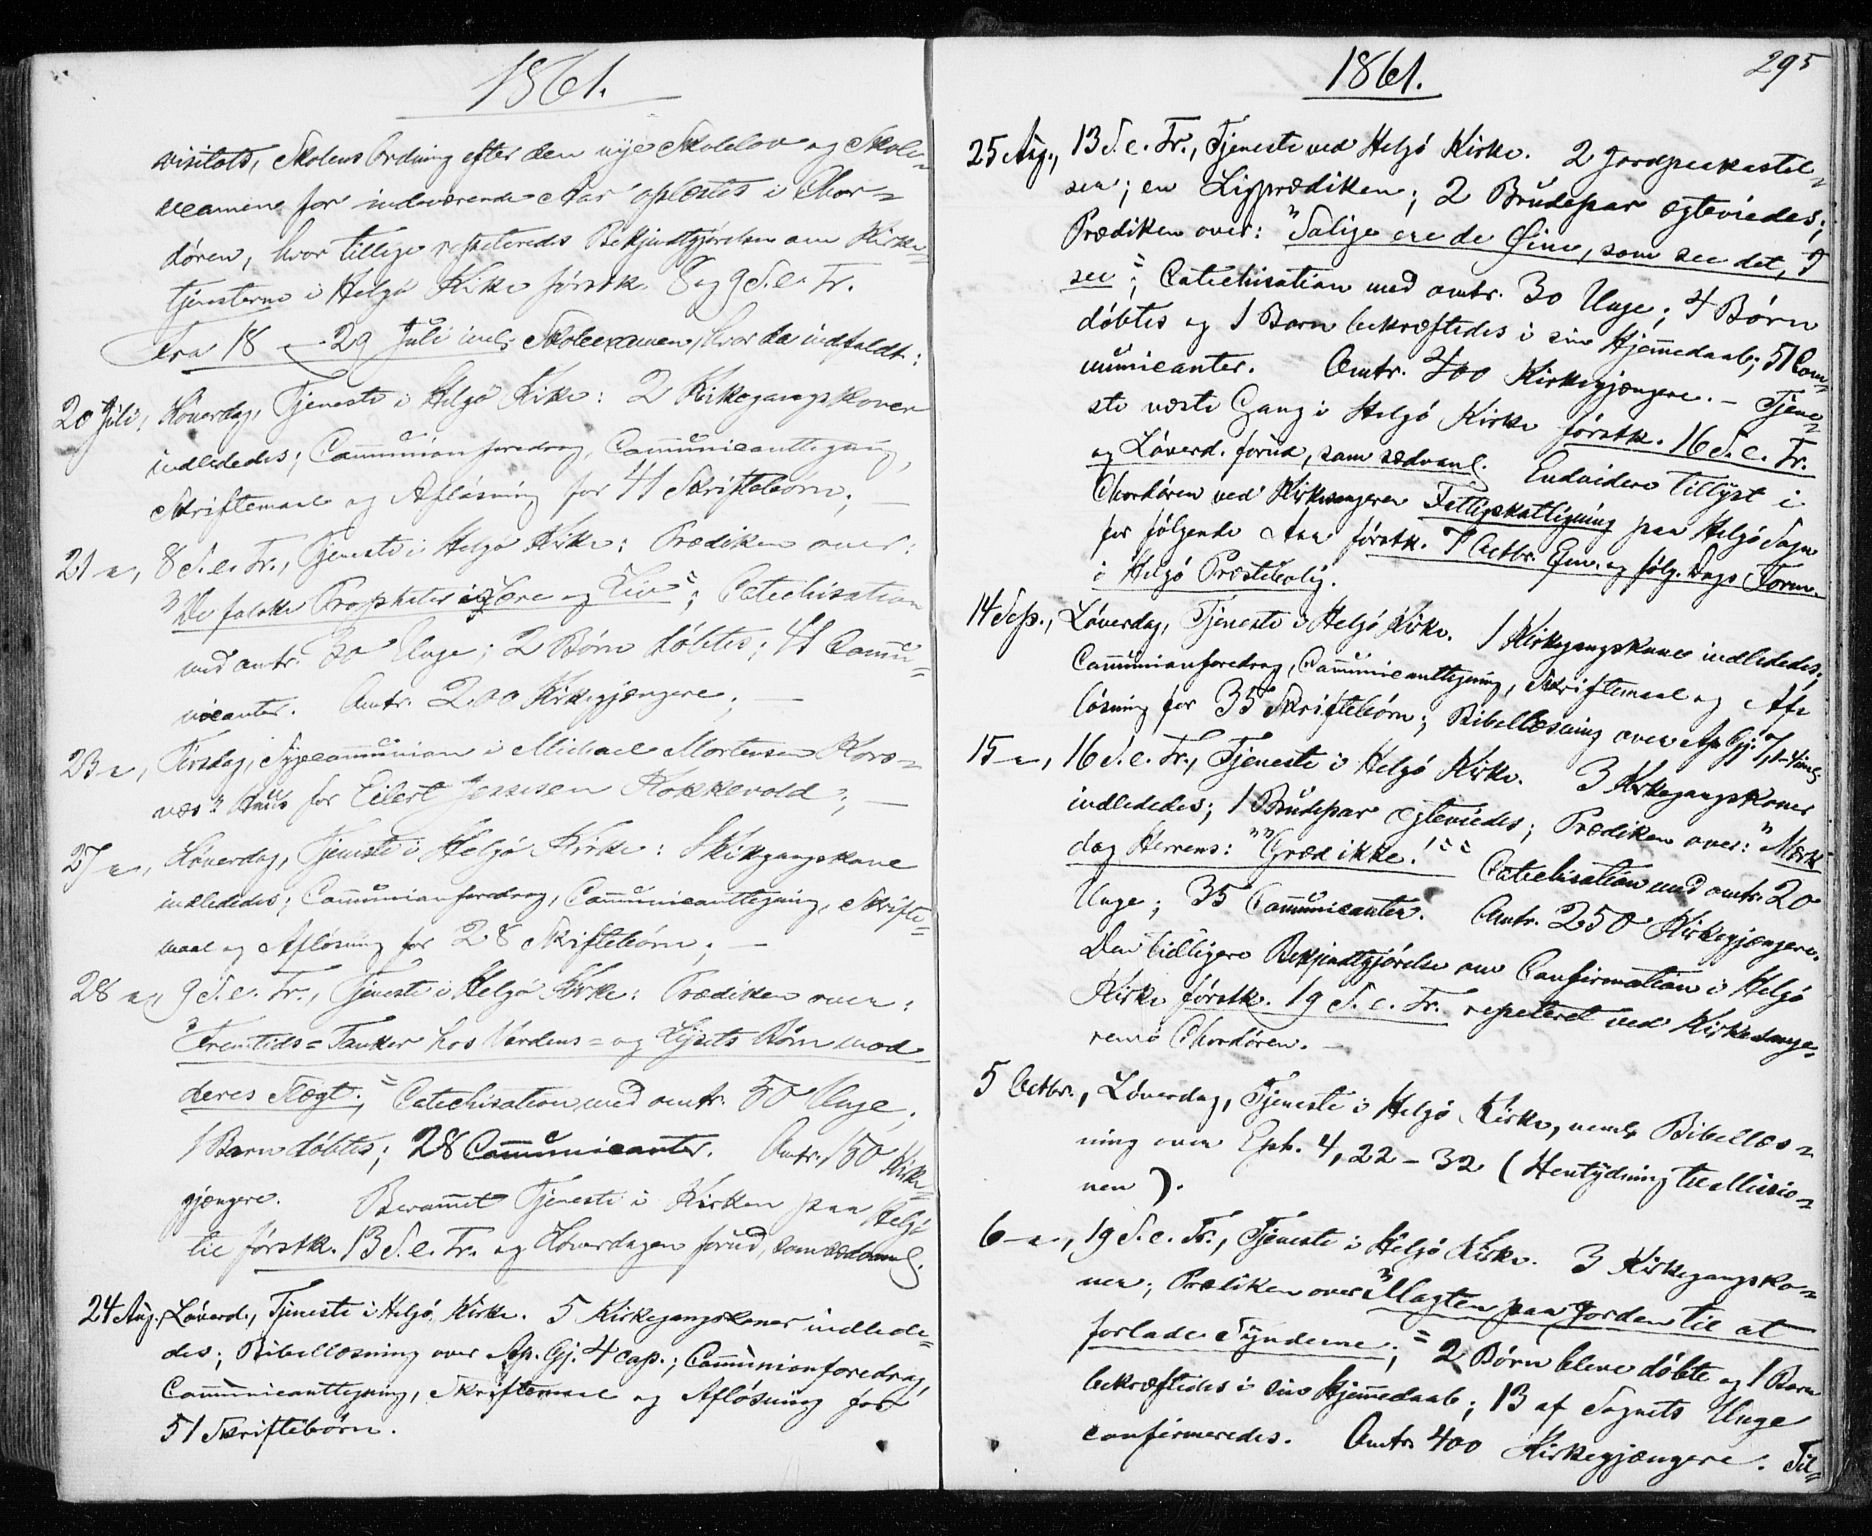 1861.
visitats, Skolens Ordning efter den nye Skolelov og Skole-
examene for indeværende Aar oplæstes i Chor-
døren, hvor tillige repeteredes Bekjendtgjørelsen om Kirke-
tjenesterne i Helgø Kirke førstk. 8 og 9 S. e. Tr.
Fra 18 – 29 Juli incl. Skoleexamen, hvor da indfaldt:
20 Juli, Løverdag, Tjeneste i Helgø Kirke: 2 Kirkegangskoner
indlededes; Communionforedrag, Communicanttegning,
Skriftemaal og Afløsning for 41 Skriftebørn; —
21 –, 8 S. e. Tr., Tjeneste i Helgø Kirke: Prædiken over:
"De falske Propheter i Lære og Liv"; Catechisation
med omtr. 30 Unge; 2 Børn døbtes; 41 Commu-
nicanter. Omtr. 200 Kirkegjængere; —
23 –, Tirsdag, Sygecommunion i Michael Mortensen Kors-
næs's Huus for Eilert Jenssen Kokkevold; —
27 –, Løverdag, Tjeneste i Helgø Kirke: 1 Kirkegangskone
indlededes; Communionforedrag, Communicanttegning, Skrifte-
maal og Afløsning for 28 Skriftebørn; —
28 –, 9 S. e. Tr., Tjeneste i Helgø Kirke: Prædiken over:
"Fremtids-Tanker hos Verdens- og Lysets Børn mod
deres Slægt;" Catechisation med omtr. 50 Unge;
1 Barn døbtes; 28 Communicanter. Omtr. 150 Kirke-
gjængere. Berammet Tjeneste i Kirken paa Helgø
til førstk. 13 S. e. Tr. og Løverdagen forud, som sædvanl.
24 Aug. Løverd., Tjeneste i Helgø Kirke. 5 Kirkegangskoner indlede-
des; Bibellæsning over Ap. Gj. 4 cap.; Communionforedrag,
Communicanttegning, Skriftemaal og Afløsning for
51 Skriftebørn.
1861.
295
25 Aug., 13 S. e. Tr., Tjeneste ved Helgø Kirke. 2 Jordpaakastel-
ser; en Ligprædiken; 2 Brudepar egteviedes;
Prædiken over: "Salige ere de Øine, som see det, I
see"; Catechisation med omtr. 30 Unge; 4 Børn
døbtes og 1 Barn bekræftedes i sin Hjemmedaab; 51 Com-
municanter. Omtr. 400 Kirkegjængere. – Tjene-
ste næste Gang i Helgø Kirke førstk. 16 S. e. Tr.
og Løverd. forud, som sædvanl. Endvidere tillyst i
Chordøren ved Kirkesangeren Fattigskatligning paa Helgø Sogn
for følgende Aar førstk. 7 Octbr. Efm. og følg. Dags Form.
i Helgø Præstebolig.
14 Sep., Løverdag, Tjeneste i Helgø Kirke. 1 Kirkegangskone indlededes;
Communionforedrag, Communicanttegning, Skriftemaal og Af-
løsning for 35 Skriftebørn; Bibellæsning over Ap. Gj. 7,
15 –, 16 S. e. Tr., Tjeneste i Helgø Kirke. 3 Kirkegangskoner
indlededes; 1 Brudepar egteviedes; Prædiken over: "Mærk
dog Herrens: ""Græd ikke!"" Catechisation med omtr. 20
Unge; 35 Communicanter. Omtr. 250 Kirkegjængere.
Den tidligere Bekjendtgjørelse om Confirmation i Helgø
Kirke førstk. 19 S. e. Tr. repeteret ved Kirkesange-
ren i Chordøren. —
5 Octbr., Løverdag, Tjeneste i Helgø Kirke, neml. Bibellæs-
ning over Eph. 4, 22 – 32 (Hentydning til Missio-
nen).
6 –, 19 S. e. Tr., Tjeneste i Helgø Kirke. 3 Kirkegangsko-
ner; Prædiken over "Magten paa Jorden til at
forlade Synderne;" 2 Børn bleve døbte og 1 Barn
bekræftedes i sin Hjemmedaab; 13 af Sognets Unge
confirmeredes. Omtr. 400 Kirkegjængere. Til-